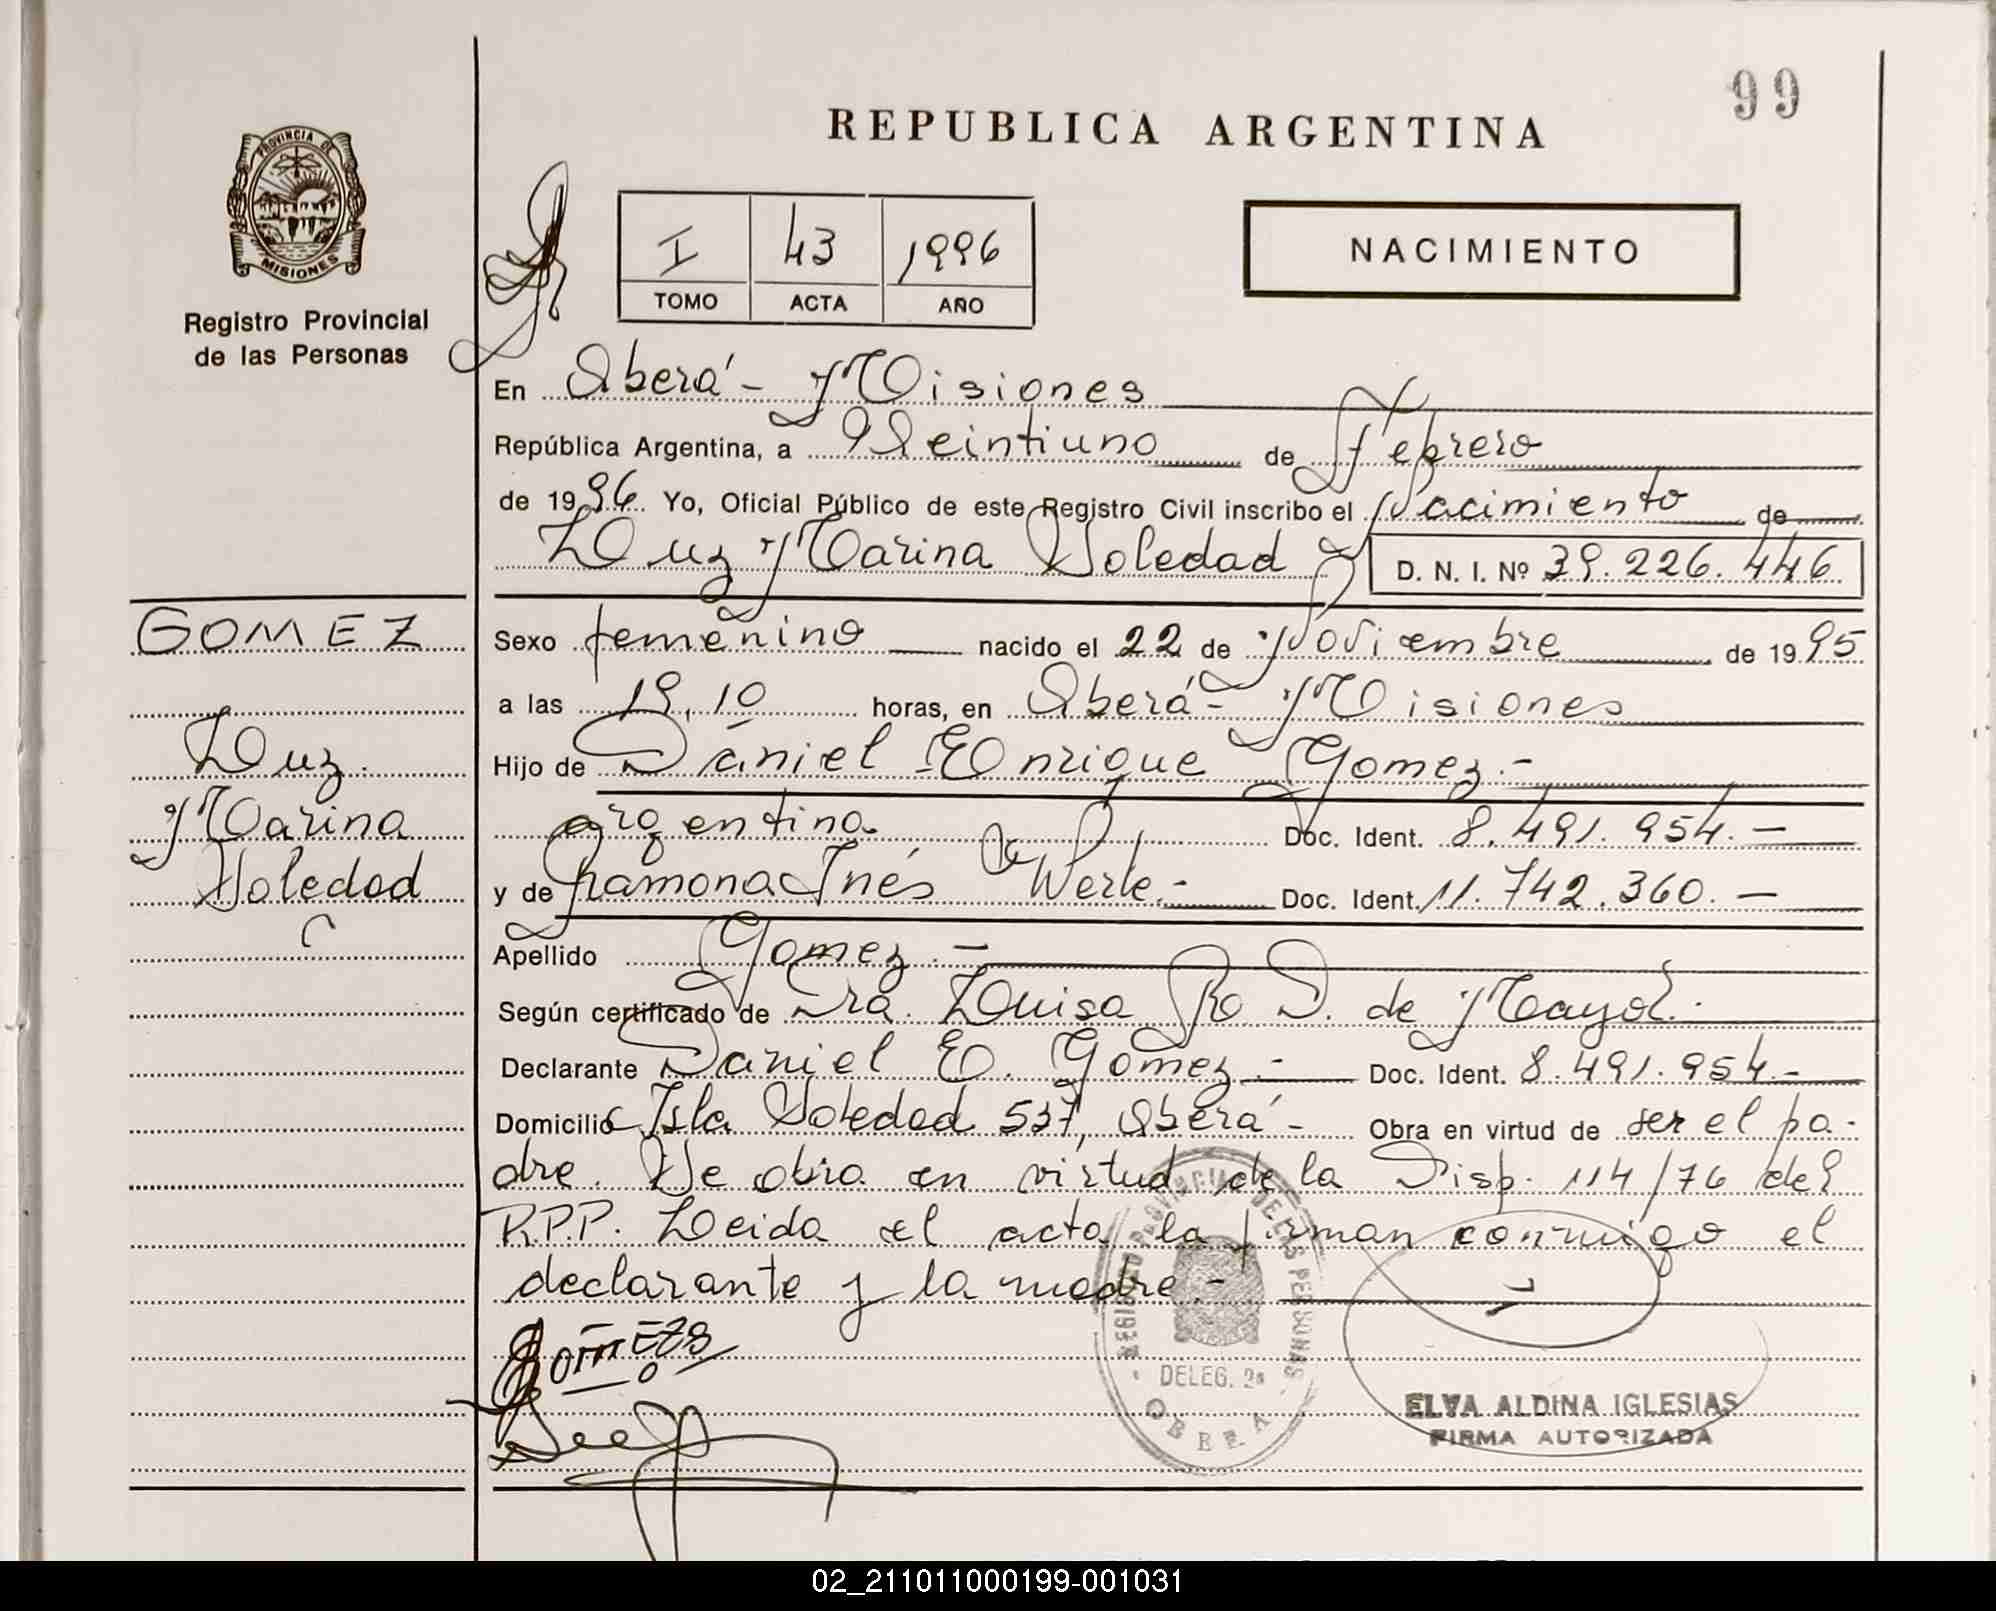 99
REPUBLICA ARGENTINA
PROVINCIA DE
MISIONES
Registro Provincial
de las Personas
I 43 1996
TOMO ACTA AÑO
NACIMIENTO
En Oberá - Misiones
República Argentina, a Veintiuno de Febrero
de 1996. Yo, Oficial Público de este Registro Civil inscribo el Nacimiento de
Luz Marina Soledad D. N. I. Nº 39.226.446
GOMEZ
Luz
Marina
Soledad
Sexo femenino nacido el 22 de Noviembre de 1995
a las 19,10 horas, en Oberá - Misiones
Hijo de Daniel Enrique Gomez.-
argentina Doc. Ident. 8.491.954.-
y de Ramona Inés Werle.- Doc. Ident. 11.742.360.-
Apellido Gomez.-
Según certificado de Dra. Luisa R. D. de Mayol.
Declarante Daniel E. Gomez.- Doc. Ident. 8.491.954.-
Domicilio Isla Soledad 537, Oberá - Obra en virtud de ser el pa-
dre. Se obra en virtud de la Disp. 114/76 del
R.P.P. Leida el acta la firman conmigo el
declarante y la madre.-
REGISTRO PROVINCIAL DE LAS PERSONAS
DELEG. 2ª
OBERA
ELVA ALDINA IGLESIAS
FIRMA AUTORIZADA
02_211011000199-001031